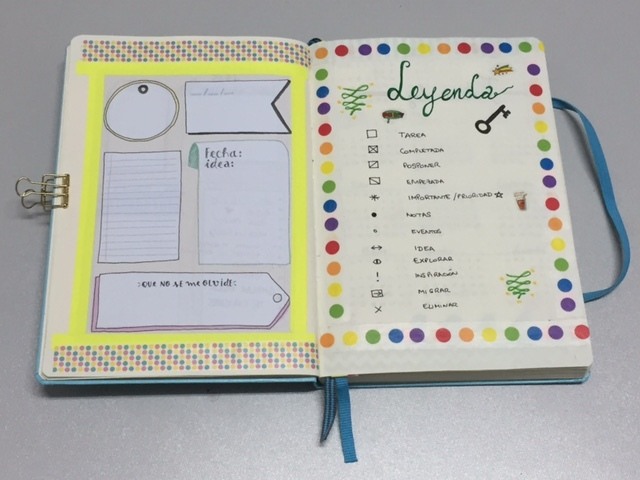 Fecha:
idea:
¡QUE NO SE me OLVIDE!
Leyenda
TAREA
COMPLETADA
POSPONER
EMPEZADA
IMPORTANTE/PRIORIDAD
NOTAS
EVENTOS
IDEA
EXPLORAR
INSPIRACIÓN
MIGRAR
ELIMINAR